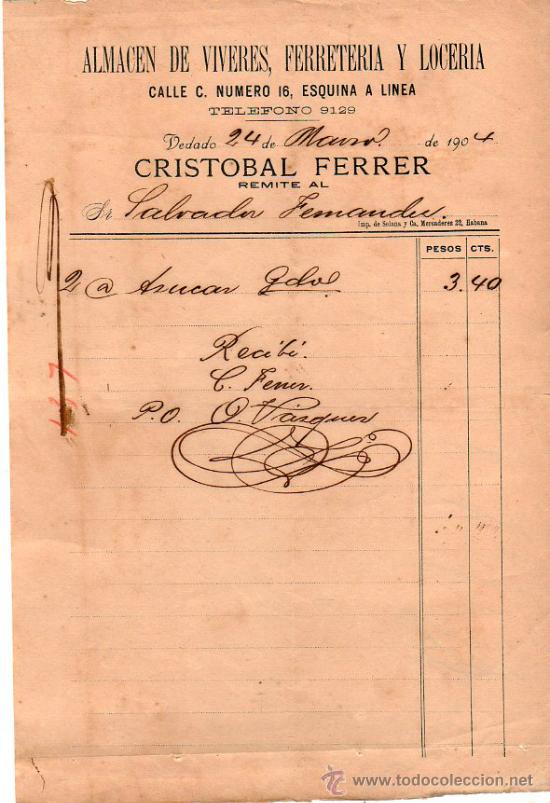 ALMACEN DE VIVERES, FERRETERIA Y LOCERIA
CALLE C. NUMERO 16, ESQUINA A LINEA
TELEFONO 9129
Vedado 24 de Marzo. de 1904.
CRISTOBAL FERRER
REMITE AL
Sr. Salvador Fernandez.
Imp. de Solana y Ca. Mercaderes 22, Habana
PESOS CTS.
2 @ Azucar 3.40
Recibí.
C. Ferrer.
P.O. O. Vasquez
137
www.todocoleccion.net